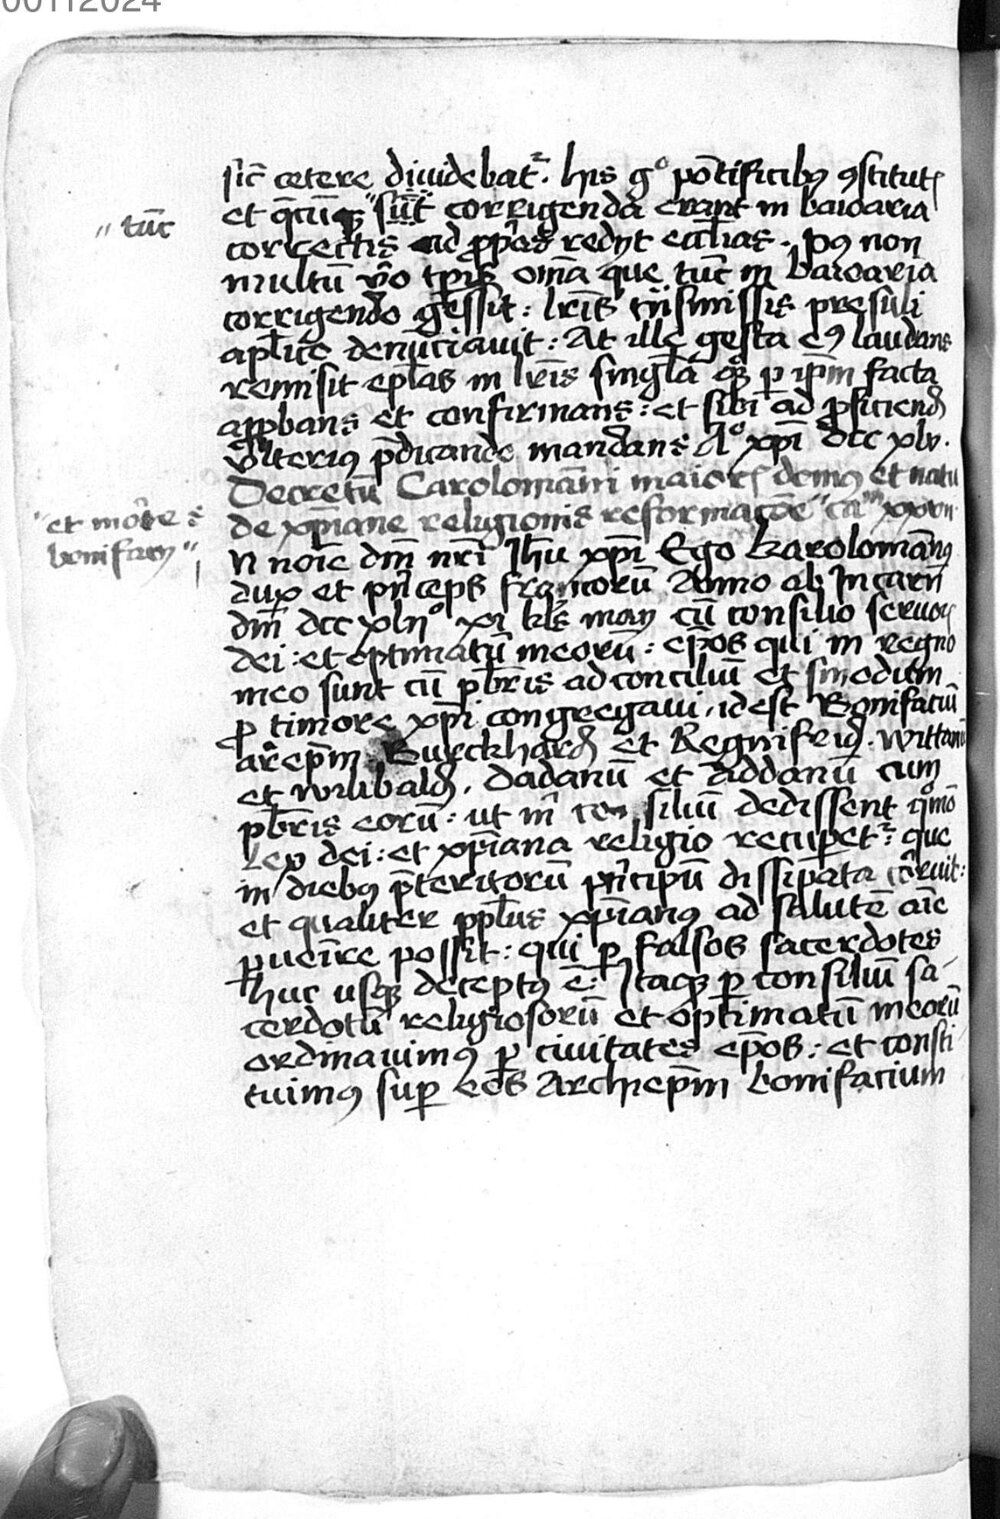 00112024
sic̄ cetere diuidebat᷑. his gͦ pōtificibꝯ ꝯstitutꝭ
et q̄cūqꝫ " sūt̄ corrigenda erant in baioaria
" tūc
correctis ad ꝓprias redijt eccl̄ias. pꝯ non
multū v̄o tꝑis om̄a que tūc in baioaria
corrigendo gessit : lr̄is tn̄smissis presuli
apl̄ice denūciauit : At ille gesta eꝯ laudans
remisit epl̄as in lr̄is singl̄a q̄ ꝑ ip̄m facta
apꝓbans et confirmans : et sibi ad ꝓficiend̄
vlteriꝯ p̄dicando mandans Aͦ xp̄i dcc xlv.
Decretū Carolomān̄i maiorꝭ domꝯ et natu
de xp̄iane religionis reformac̄oe " cam xxvii
" et mōre s
bonifacij "
N noīe dn̄i nr̄i Jh̄u xp̄i Ego karolomān̄ꝯ
dux et pn̄ceps francorū Anno ab Jncarn̄
dn̄i dcc xlijͦ xi kl̄s maij cū consilio seruoꝝ
dei : et optimatū meorū : ep̄os qui in regno
meo sunt cū pb̄ris ad conciliū et sinodum
ꝓ timore xp̄i congregaui . id est Bonifaciū
arēp̄m Burckhard̄ et Regnifrid̄ . wittanū
et wilibald̄ . dadanū et addanū cum
pb̄ris eorū : ut m̄ consiliū dedissent qͦmō
lex dei : et xp̄iana religio recuꝑet᷑ : que
in diebꝯ p̄teritorū pn̄cipū dissipata corruit :
et qualiter ppl̄us xp̄ianꝯ ad salutē aīe
ꝑuenīre possit : qui ꝑ falsos sacerdotes
huc usqꝫ deceptꝯ ē : Jtaqꝫ ꝑ consiliū sa-
cerdotū religiosorū et optimatū meorū
ordinauimꝯ ꝑ ciuitates ep̄os : et consti
tuimꝯ suꝑ eos Archiep̄m bonifacium